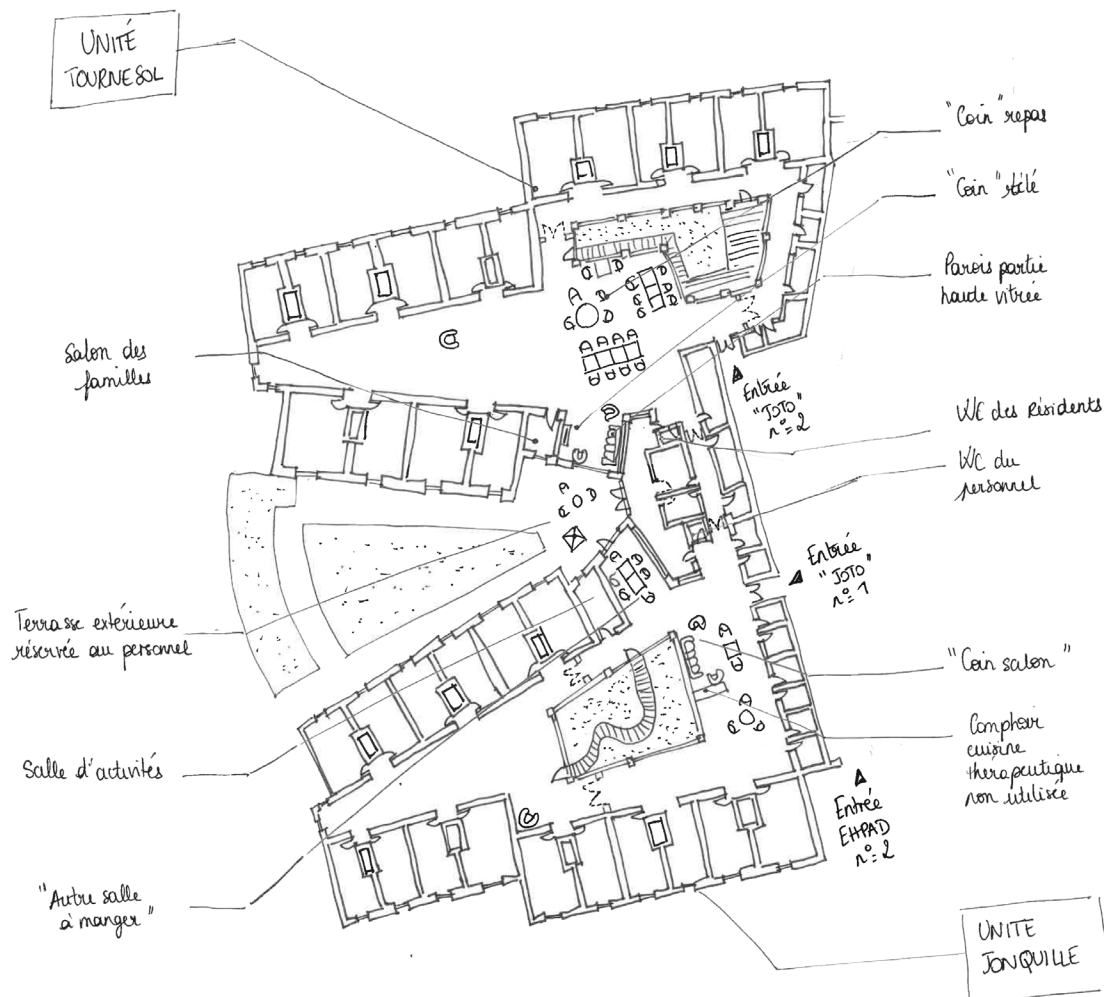 UNITÉ
TOURNESOL
"Coin" repas
"Coin" télé
Parois partie
haute vitrée
Salon des
familles
Entrée
"JOJO"
n°=2
WC des Résidents
WC du
personnel
Entrée
"JOJO"
n°=1
Terrasse extérieure
réservée au personnel
"Coin salon"
Salle d'activités
Comptoir
cuisine
thérapeutique
non utilisée
Entrée
EHPAD
n°=2
"Autre salle
à manger"
UNITE
JONQUILLE